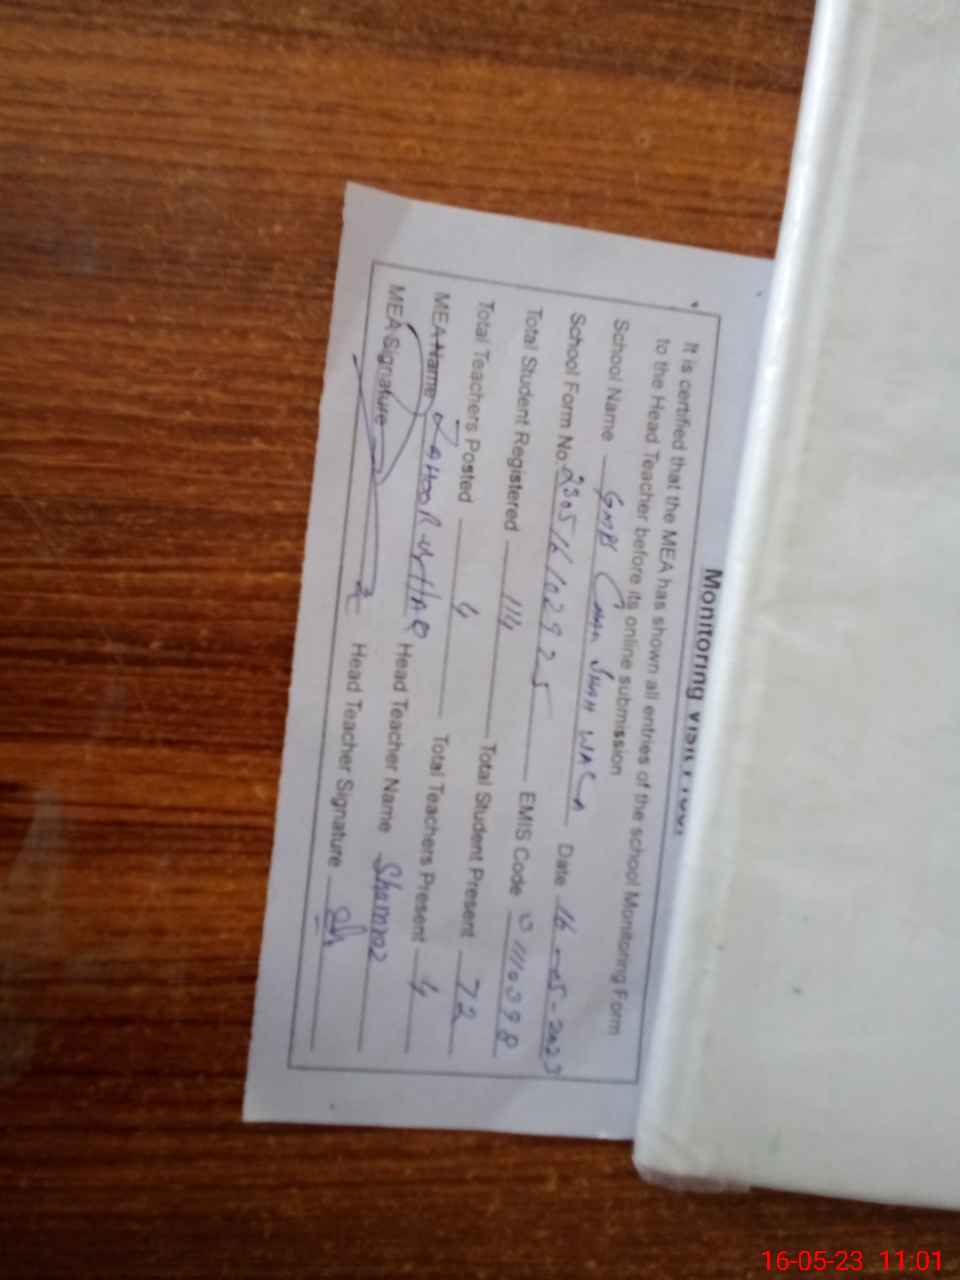 Monitoring Visit Proof
It is certified that the MEA has shown all entries of the school Monitoring Form
to the Head Teacher before its online submission
School Name GMPS Chah Shah Wala Date 16-05-2023
School Form No. 2305161029 EMIS Code
Total Student Registered 114 Total Student Present 72
Total Teachers Posted 4 Total Teachers Present 4
MEA Name ZAHOOR UL HAQ Head Teacher Name
MEA Signature Head Teacher Signature
16-05-23 11:01